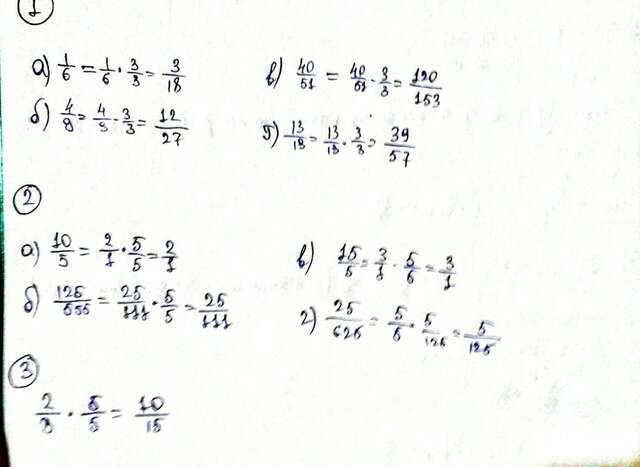 1
а) 1/6 = 1/6 · 3/3 = 3/18
в) 40/51 = 40/51 · 3/3 = 120/153
б) 4/9 = 4/9 · 3/3 = 12/27
г) 13/19 = 13/19 · 3/3 = 39/57
2
а) 10/5 = 2/1 · 5/5 = 2/1
в) 15/5 = 3/1 · 5/5 = 3/1
б) 125/555 = 25/111 · 5/5 = 25/111
г) 25/625 = 5/5 · 5/125 = 5/125
3
2/3 · 5/5 = 10/15